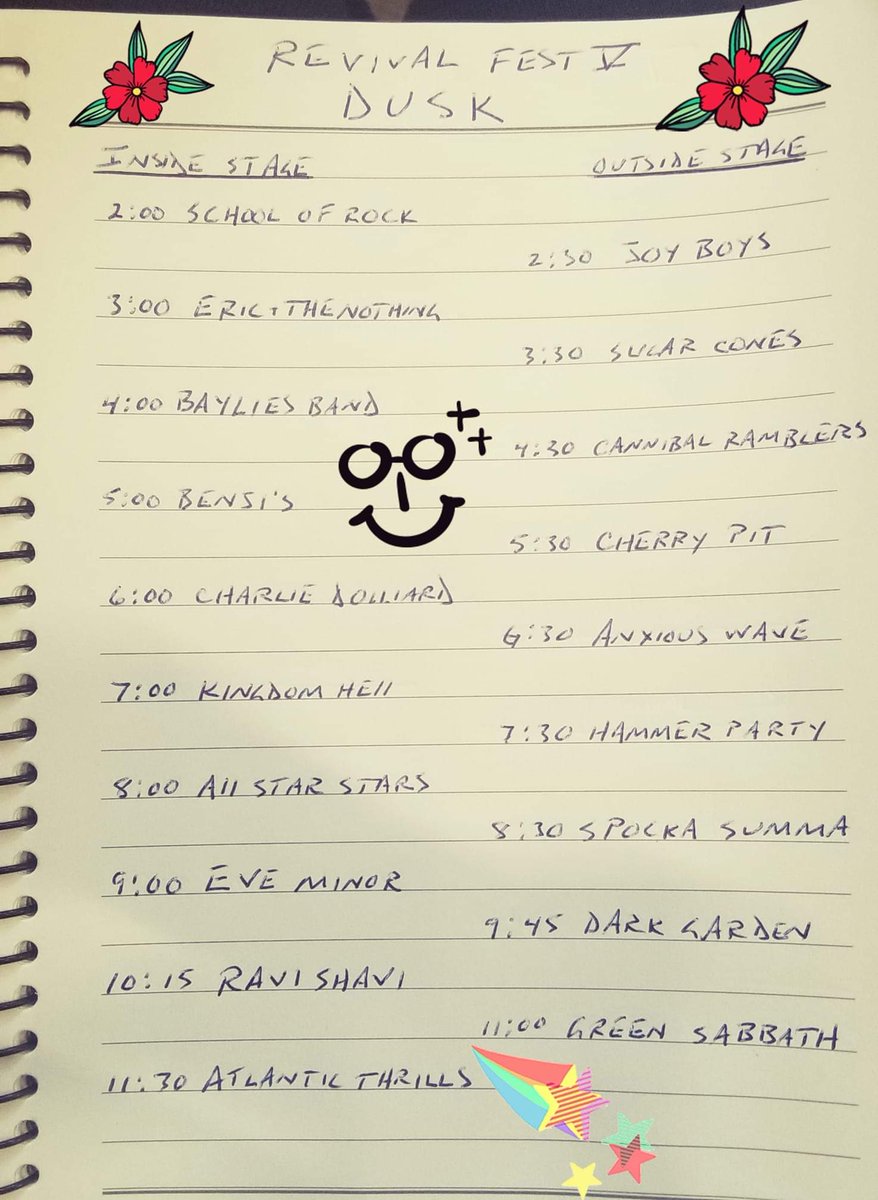 REVIVAL FEST V
DUSK
INSIDE STAGE
OUTSIDE STAGE
2:00 SCHOOL OF ROCK
2:30 JOY BOYS
3:00 ERIC + THE NOTHING
3:30 SUGAR CONES
4:00 BAYLIES BAND
4:30 CANNIBAL RAMBLERS
5:00 BENSI'S
5:30 CHERRY PIT
6:00 CHARLIE DOLLIARD
6:30 ANXIOUS WAVE
7:00 KINGDOM HELL
7:30 HAMMER PARTY
8:00 ALL STAR STARS
8:30 SPOCKA SUMMA
9:00 EVE MINOR
9:45 DARK GARDEN
10:15 RAVI SHAVI
11:00 GREEN SABBATH
11:30 ATLANTIC THRILLS